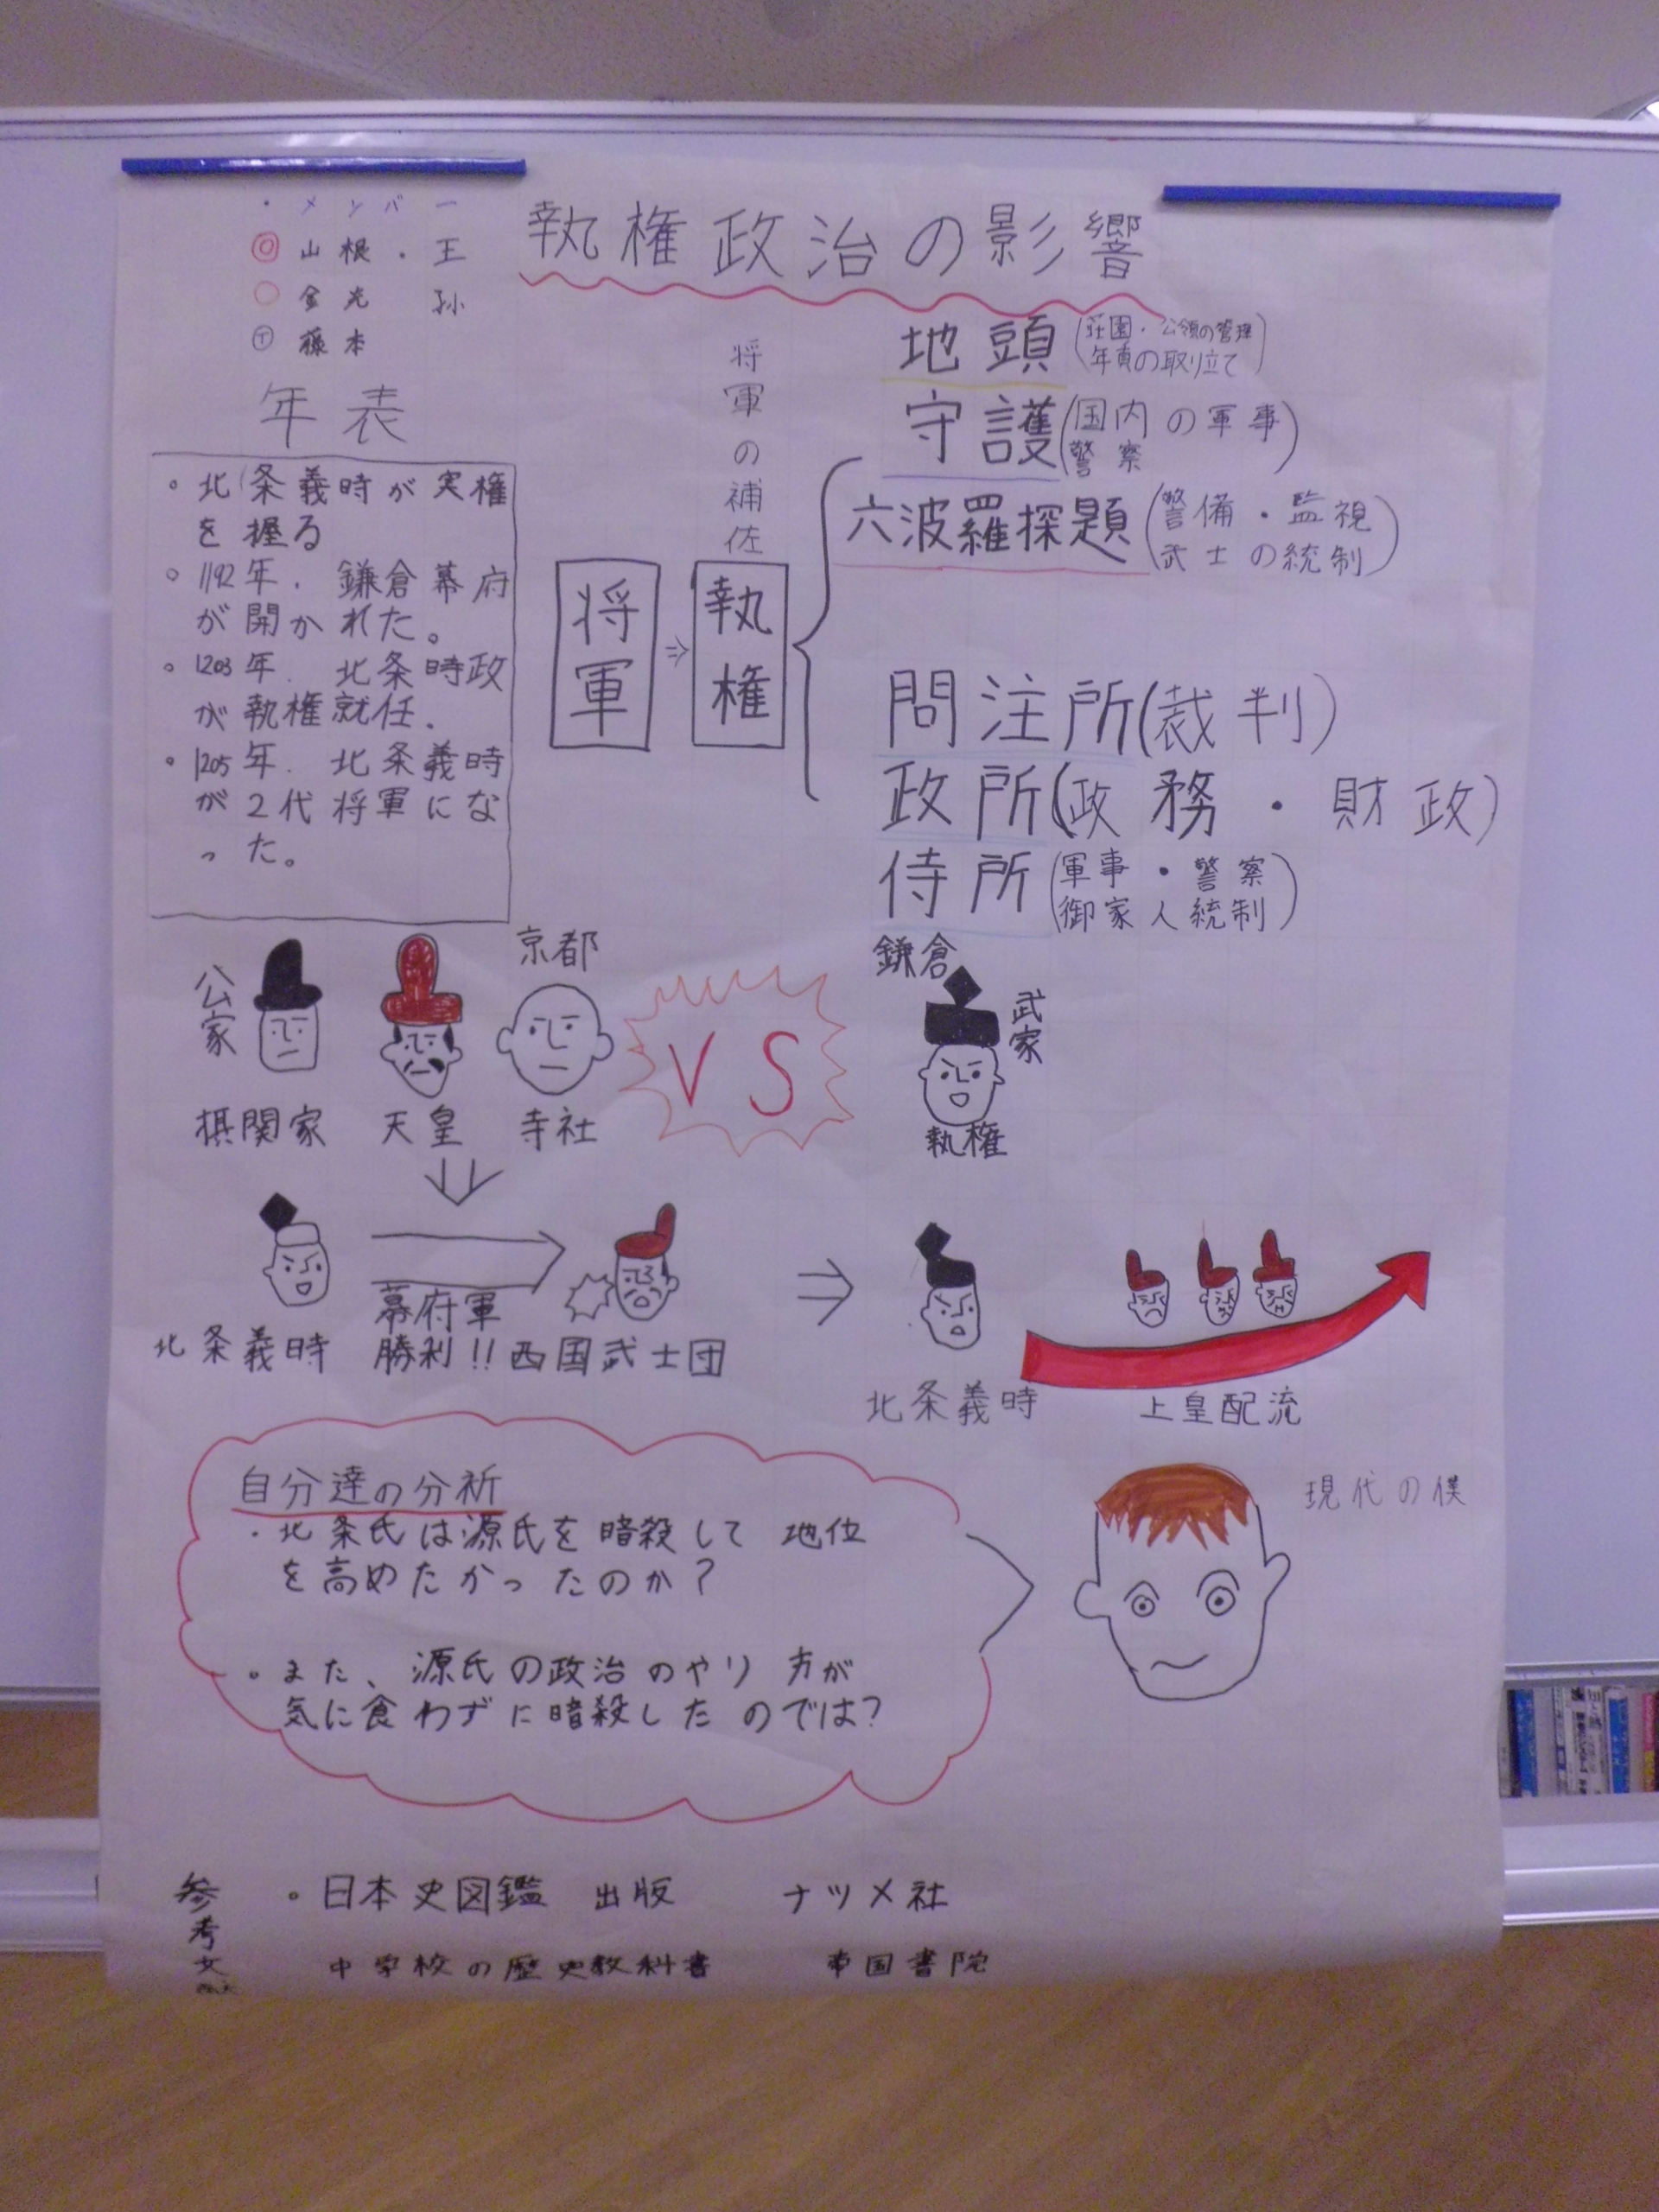 ・メンバー
◎山根・王
○金光 孫
㋹藤本
執権政治の影響
年表
・北条義時が実権
を握る
・1192年.鎌倉幕府
が開かれた。
・1203年.北条時政
が執権就任.
・1205年.北条義時
が2代将軍にな
った。
将軍
⇒
将軍の補佐
執権
地頭(荘園・公領の管理
年貢の取り立て)
守護(国内の軍事
警察)
六波羅探題(警備・監視
武士の統制)
問注所(裁判)
政所(政務・財政)
侍所(軍事・警察
御家人統制)
公家
京都
摂関家
天皇
寺社
VS
鎌倉
武家
執権
北条義時
幕府軍
勝利!!
西国武士団
北条義時
上皇配流
自分達の分祈
・北条氏は源氏を暗殺して地位
を高めたかったのか?
・また、源氏の政治のやり方が
気に食わずに暗殺したのでは?
現代の僕
参考文
・日本史図鑑 出版 ナツメ社
中学校の歴史教科書 帝国書院